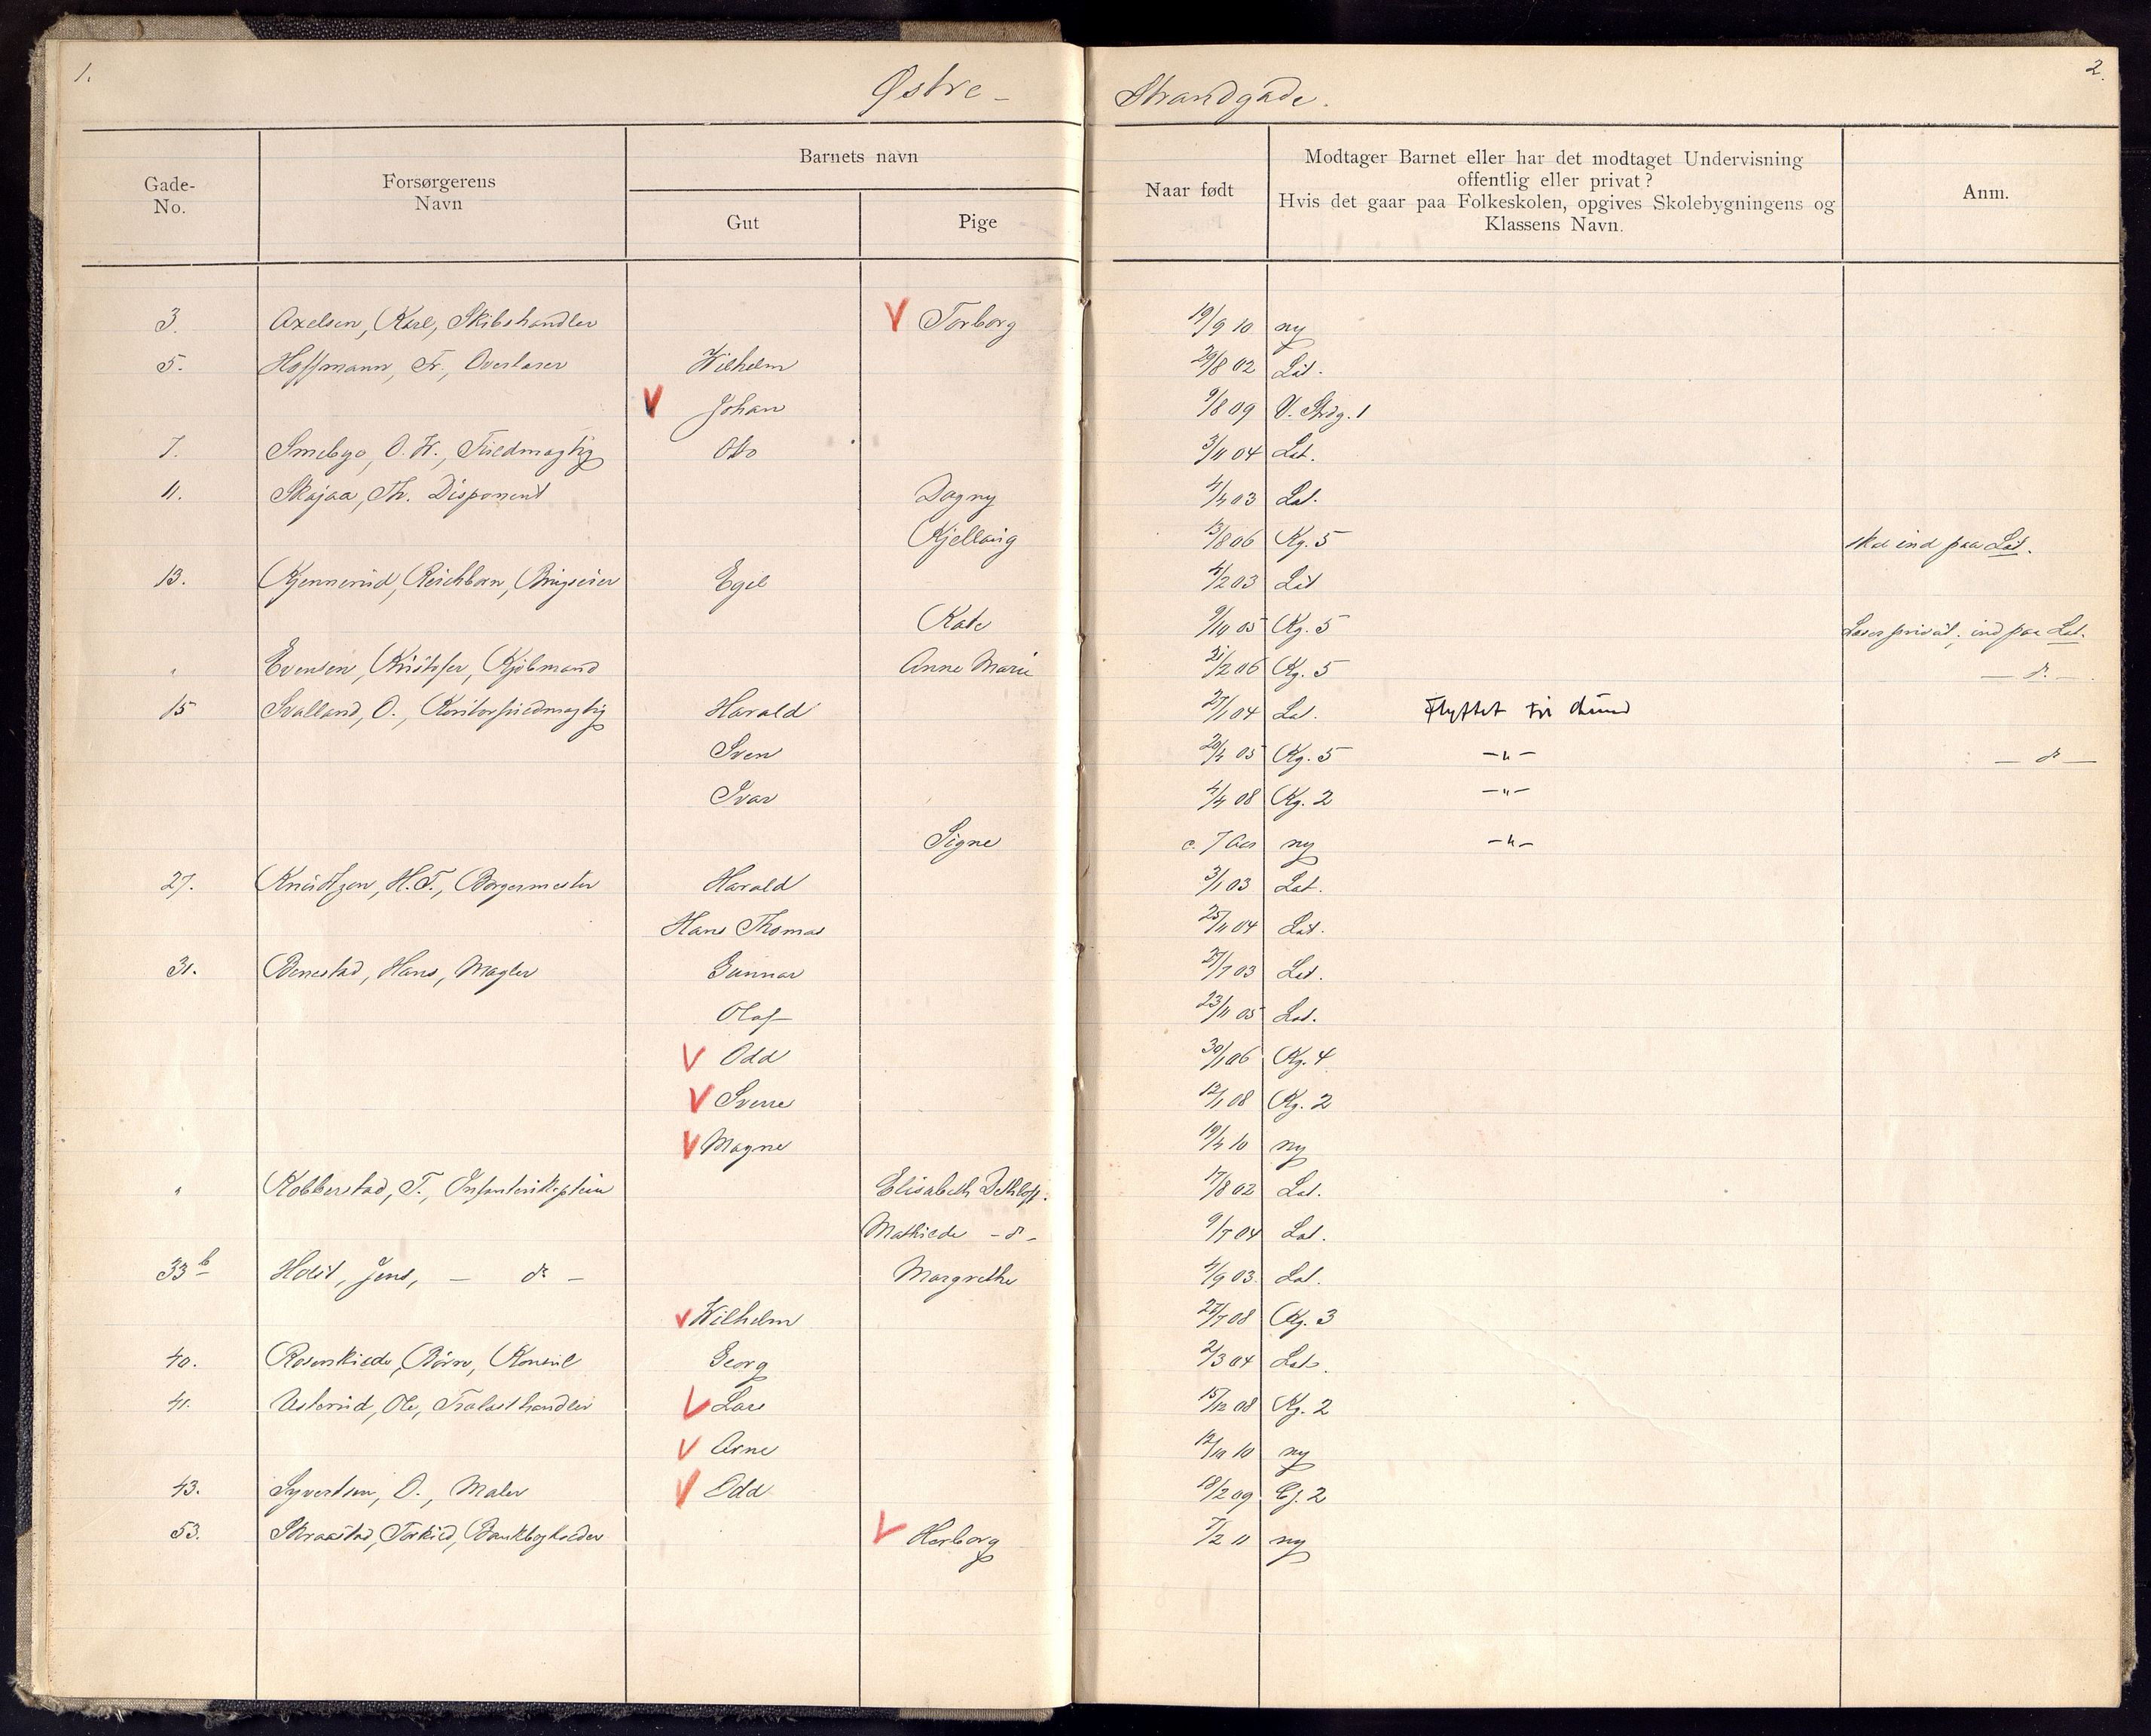 1.
Østre –
Strandgade.
2.
Gade-
No.
Forsørgerens
Navn
Barnets navn
Gut
Pige
Naar født
Modtager Barnet eller har det modtaget Undervisning
offentlig eller privat?
Hvis det gaar paa Folkeskolen, opgives Skolebygningens og
Klassens Navn.
Anm.
3. Axelsen, Karl, Skibshandler V Torborg 19/9 10 ny
5. Hoffmann, Fr., Overlærer Wilhelm 29/8 02 Lat.
V Johan 9/8 09 V. Strdg. 1
7. Smebye, O. W., Fuldmægtig Otto 3/11 04 Lat.
11. Skajaa, Th. Disponent Dagny 4/4 03 Lat.
Kjellaug 13/8 06 Kg. 5 skal ind paa Lat.
13. Kjennerud, Reichborn, Brugseier Egil 4/2 03 Lat
Kate 9/10 05 Kg. 5 Læser privat, ind paa Lat.
" Evensen, Kristofer, Kjøbmand Anne Marie 21/2 06 Kg. 5 — do. —
15 Svalland, O., Kontorfuldmægtig Harald 27/1 04 Lat. Flyttet til
Sven 20/4 05 Kg. 5 –"– — do —
Ivar 4/4 08 Kg. 2 –"–
Signe c. 7 Aar ny –"–
27. Knudtzon, H. T., Borgermester Harald 3/1 03 Lat.
Hans Thomas 25/11 04 Lat.
31. Benestad, Hans, Mægler Gunnar 27/7 03 Lat.
Olaf 23/11 05 Lat.
V Odd 30/1 06 Kg. 4
V Sverre 12/1 08 Kg. 2
V Magne 19/4 10 ny
" Kobberstad, T., Infanterikaptein Elisabeth Dethloff. 17/8 02 Lat.
Mathilde – do – 9/7 04 Lat.
33 b Holst, Jens, — do — Margrethe 4/9 03. Lat.
V Wilhelm 27/7 08 Kg. 3
40. Rosenskilde, Børre, Konsul Georg 2/3 04 Lat.
41. Asterud, Ole, Trælasthandler V Lars 15/12 08 Kg. 2
V Arne 12/10 10 ny
43. Syvertsen, O., Maler V Odd 18/2 09 Gj. 2
53. Skraastad, Torkild, Bankbogholder V Herborg 7/2 11 ny